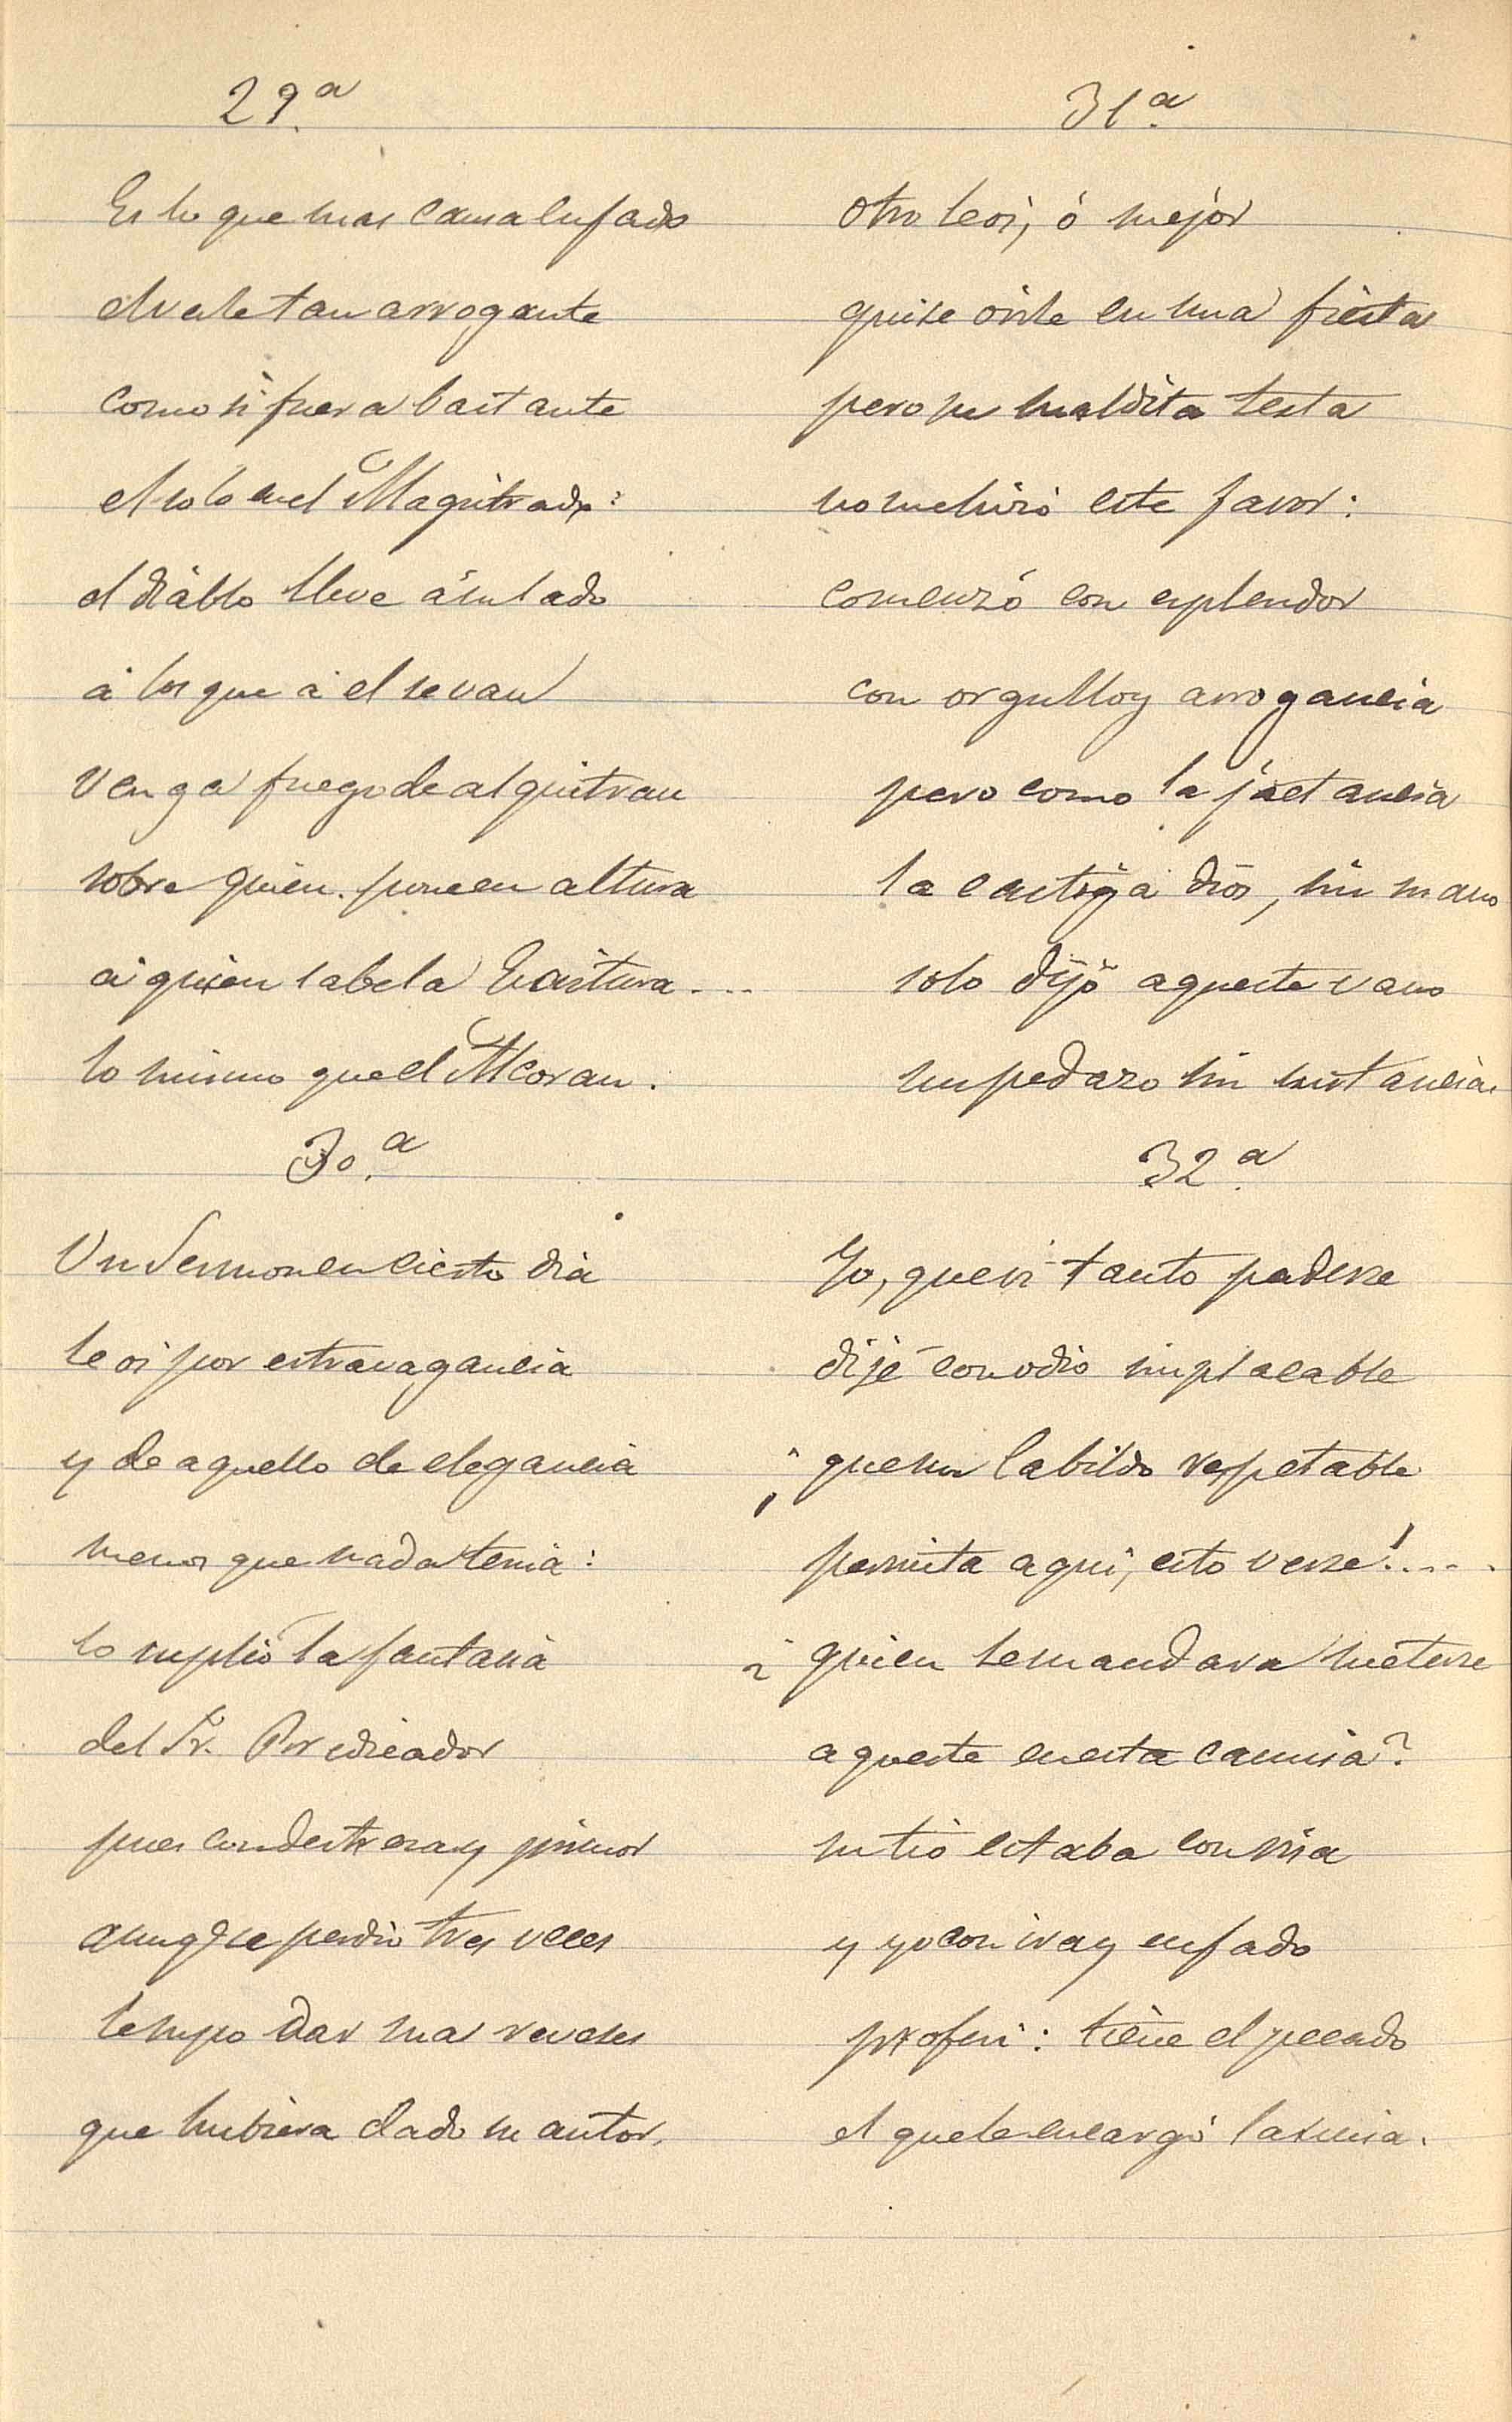 29.ª
Es lo que mas causa enfado
el verle tan arrogante
como si fuera bastante
el solo en el Magistrado:
el diablo lleve á su lado
á los que á el se van
venga fuego de alquitran
sobre quien pone en altura
á quien sabe la Escritura....
lo mismo que el Alcoran.
30.ª
Un Sermon en cierto dia
le oi por estravagancia
y de aquello de elegancia
menos que nada tenia:
lo suplió la fantasia
del Sr. Predicador
pues con destreza y primor
aunq.e se perdio tres veces
le supo dar mas reveses
que hubiera dado su autor.
31.ª
Otro leoi, ó mejor
quise oirle en una fiesta
pero su maldita testa
no me hizo este favor:
comenzó con esplendor
con orgullo y arrogancia
pero como la jactancia
la castiga dios, sin mano
solo dijo aqueste vano
un pedazo sin sustancia.
32.ª
Yo, que vi tanto perderse
dije con odio implacable
¡que un Cabildo respetable
permita aqui, esto verse!....
¿quien le mandara meterse
aqueste en esta camisa?
su tio estaba con risa
y yo con ira y enfado
proferi: tiene el pecado
el que le encargó la misa.